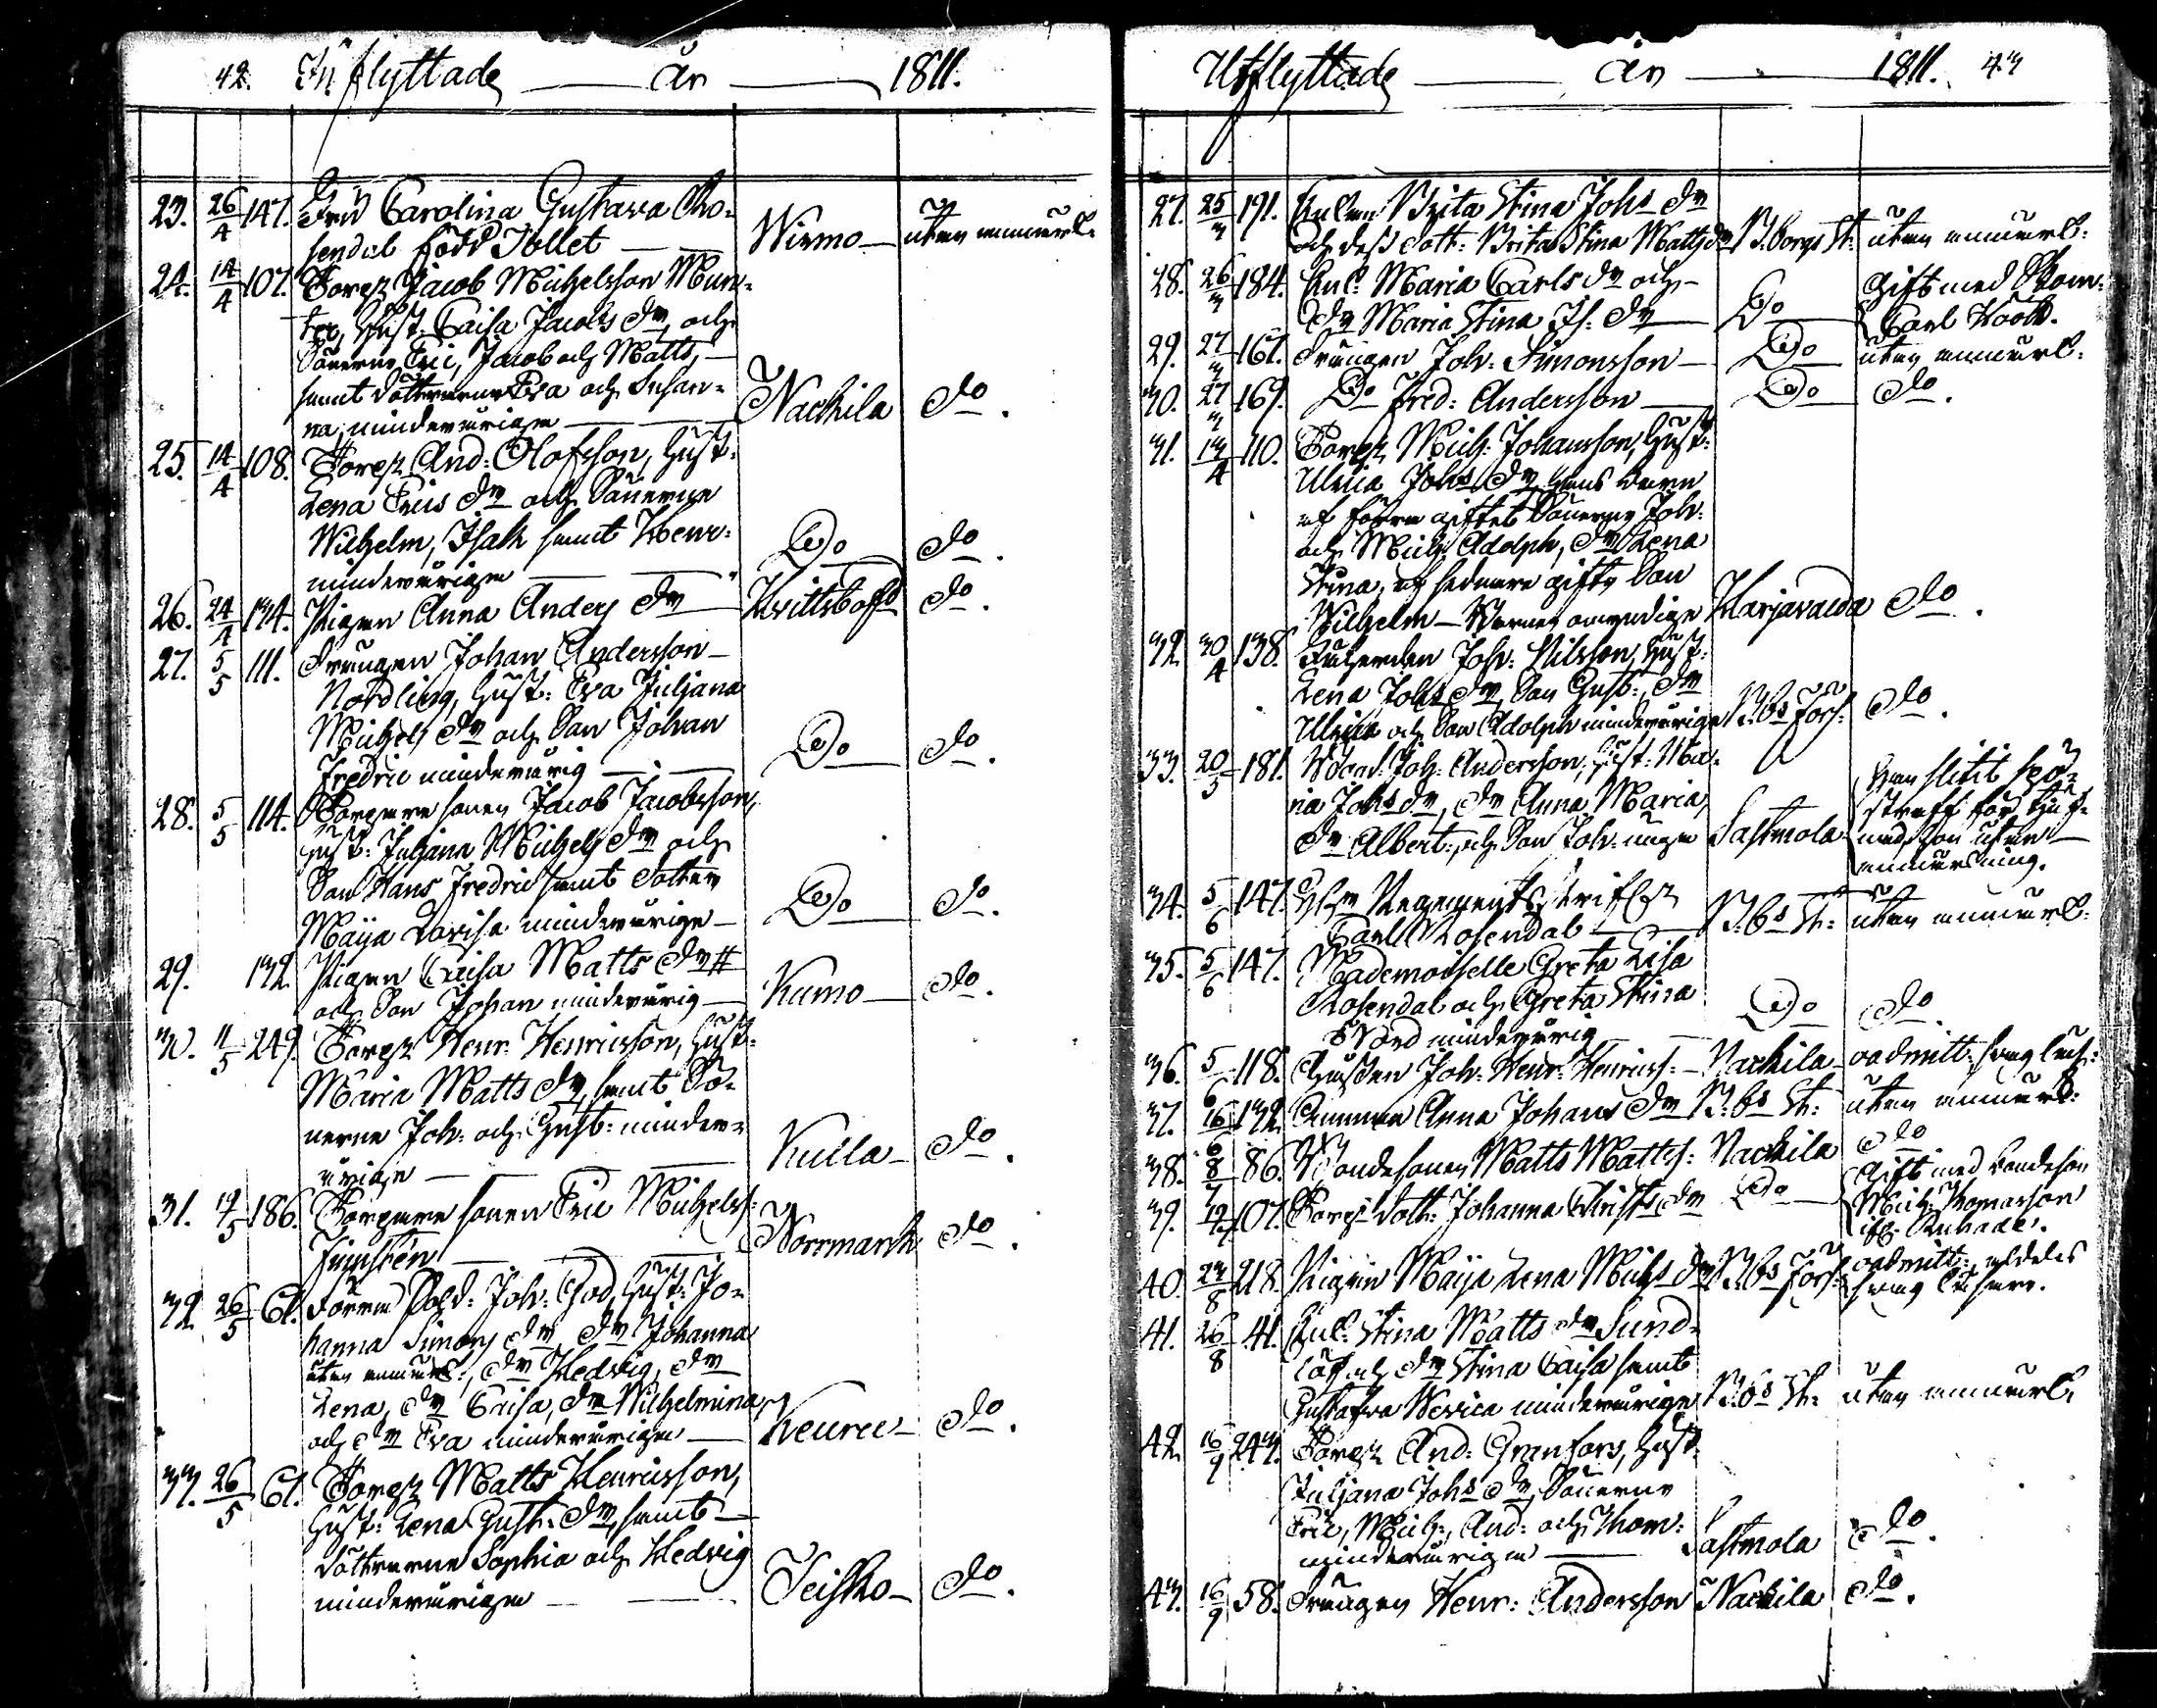 42. Inflyttade År 1811.
23. 26/4 147. Fru Carolina Gustava Ro=
sendal född Idllet Wirmo utan anmärk.
24. 14/4 107. Torp: Jacob Michelsson Mun=
ter, Hust: Caisa Jacobs dr, och
Sönerne Eric, Jacob och Matts,
samt döttrarne Eva och Susan=
na, minderårige Nackila do.
25. 14/4 108. Torp: And: Olofsson, Hust:
Lena Erics dr och Sönerne
Wilhelm, Isak samt Henr:
minderårige Do do.
26. 24/4 134. Pigan Anna Anders dr Hvittisbofjd do.
27. 5/5 111. Drängen Johan Andersson
Nordling, Hust: Eva Juljana
Michels dr och Son Johan
Fredric minderårig Do do.
28. 5/5 114. Torpare sonen Jacob Jacobsson,
Hust: Juljana Michels dr och
Son Hans Fredric samt dotter
Maija Lovisa minderårige Do do.
29. 132. Pigan Caisa Matts dr #
och Son Johan minderårig Kumo do.
30. 11/5 249. Torp: Henr: Henricsson, Hust:
Maria Matts dr, samt Sö=
nerne Joh: och Gust: minder=
årige Kulla do.
31. 19/5 186. Torpare sonen Eric Michelss:
Norrmark do.
32. 26/5 61. Förra Sold: Joh: God, Hust: Jo=
hanna Simons dr, dr Johanna
utan anmärk:, dr Hedvig, dr
Lena, dr Caisa, dr Wilhelmina
och dr Eva minderårige Keuru do.
33. 26/5 61. Torp: Matts Henricsson,
Hust: Lena Gust: dr, samt
döttrarne Sophia och Hedvig
minderårige Teisko do.
Utflyttade År 1811. 43
27. 25/3 191. Enkan Brita Stina Johs dr
och dess dott: Brita Stina Matts dr B:borgs St: utan anmärk:
28. 26/3 184. Enk: Maria Carls dr och
dr Maria Stina Js: dr Do Gift med
Carl
29. 27/3 167. Drängen Joh: Simonsson Do utan anmärk:
30. 27/3 169. Do Fred: Andersson Do do.
31. 13/4 110. Torp: Mich: Johansson, Hust:
Ulrica Johs dr, hans barn
af förra giftet Sönerne Joh:
och Mich: Adolph, dr Lena
Stina, af sednare gifte Son
Wilhelm Barnen omyndige Harjavalda do.
32. 30/4 138. Joh: Nilsson, Hust:
Lena Johs dr, Son Gust:, dr
Ulrica och Son Adolph minderårige B:bs Förs: do.
33. 20/5 181. Joh: Andersson, Hust: Ma=
ria Johs dr, dr Anna Maria,
dr Albert:, och Son Joh: unga Sastmola
med son utan
anmärkning.
34. 5/6 147. Regements Skrifv:
Carl Rosendal B:bs St: utan anmärk:
35. 5/6 147. Mademoiselle Greta Lisa
Rosendal och Greta Stina
minderårig Do do
36. 5/6 118. Joh: Henr: Henricss: Nackila oadmitt:
37. 16/6 132. Anna Johans dr B:bs St: utan anmärk:
38. 8/7 86. Bondesonen Matts Mattss: Nackila do
39. 107. Torp: dott: Johanna Do Gift med bondeson
Mich: Thomasson
40. 23/8 218. Pigan Maija Lena Michs dr B:bs Förs: oadmitt:, aldeles
svag läsare.
41. 26/8 41. Enk: Stina Matts dr Sund=
löf och dr Stina Caisa samt
Gustafva minderårige B:bs St: utan anmärk.
42. 16/9 243. Torp: And: Granfors, Hust:
Juljana Johs dr, Sönerne
Eric, Mich:, And: och Thom:
minderårige Sastmola do.
43. 16/9 58. Drängen Henr: Andersson Nackila do.